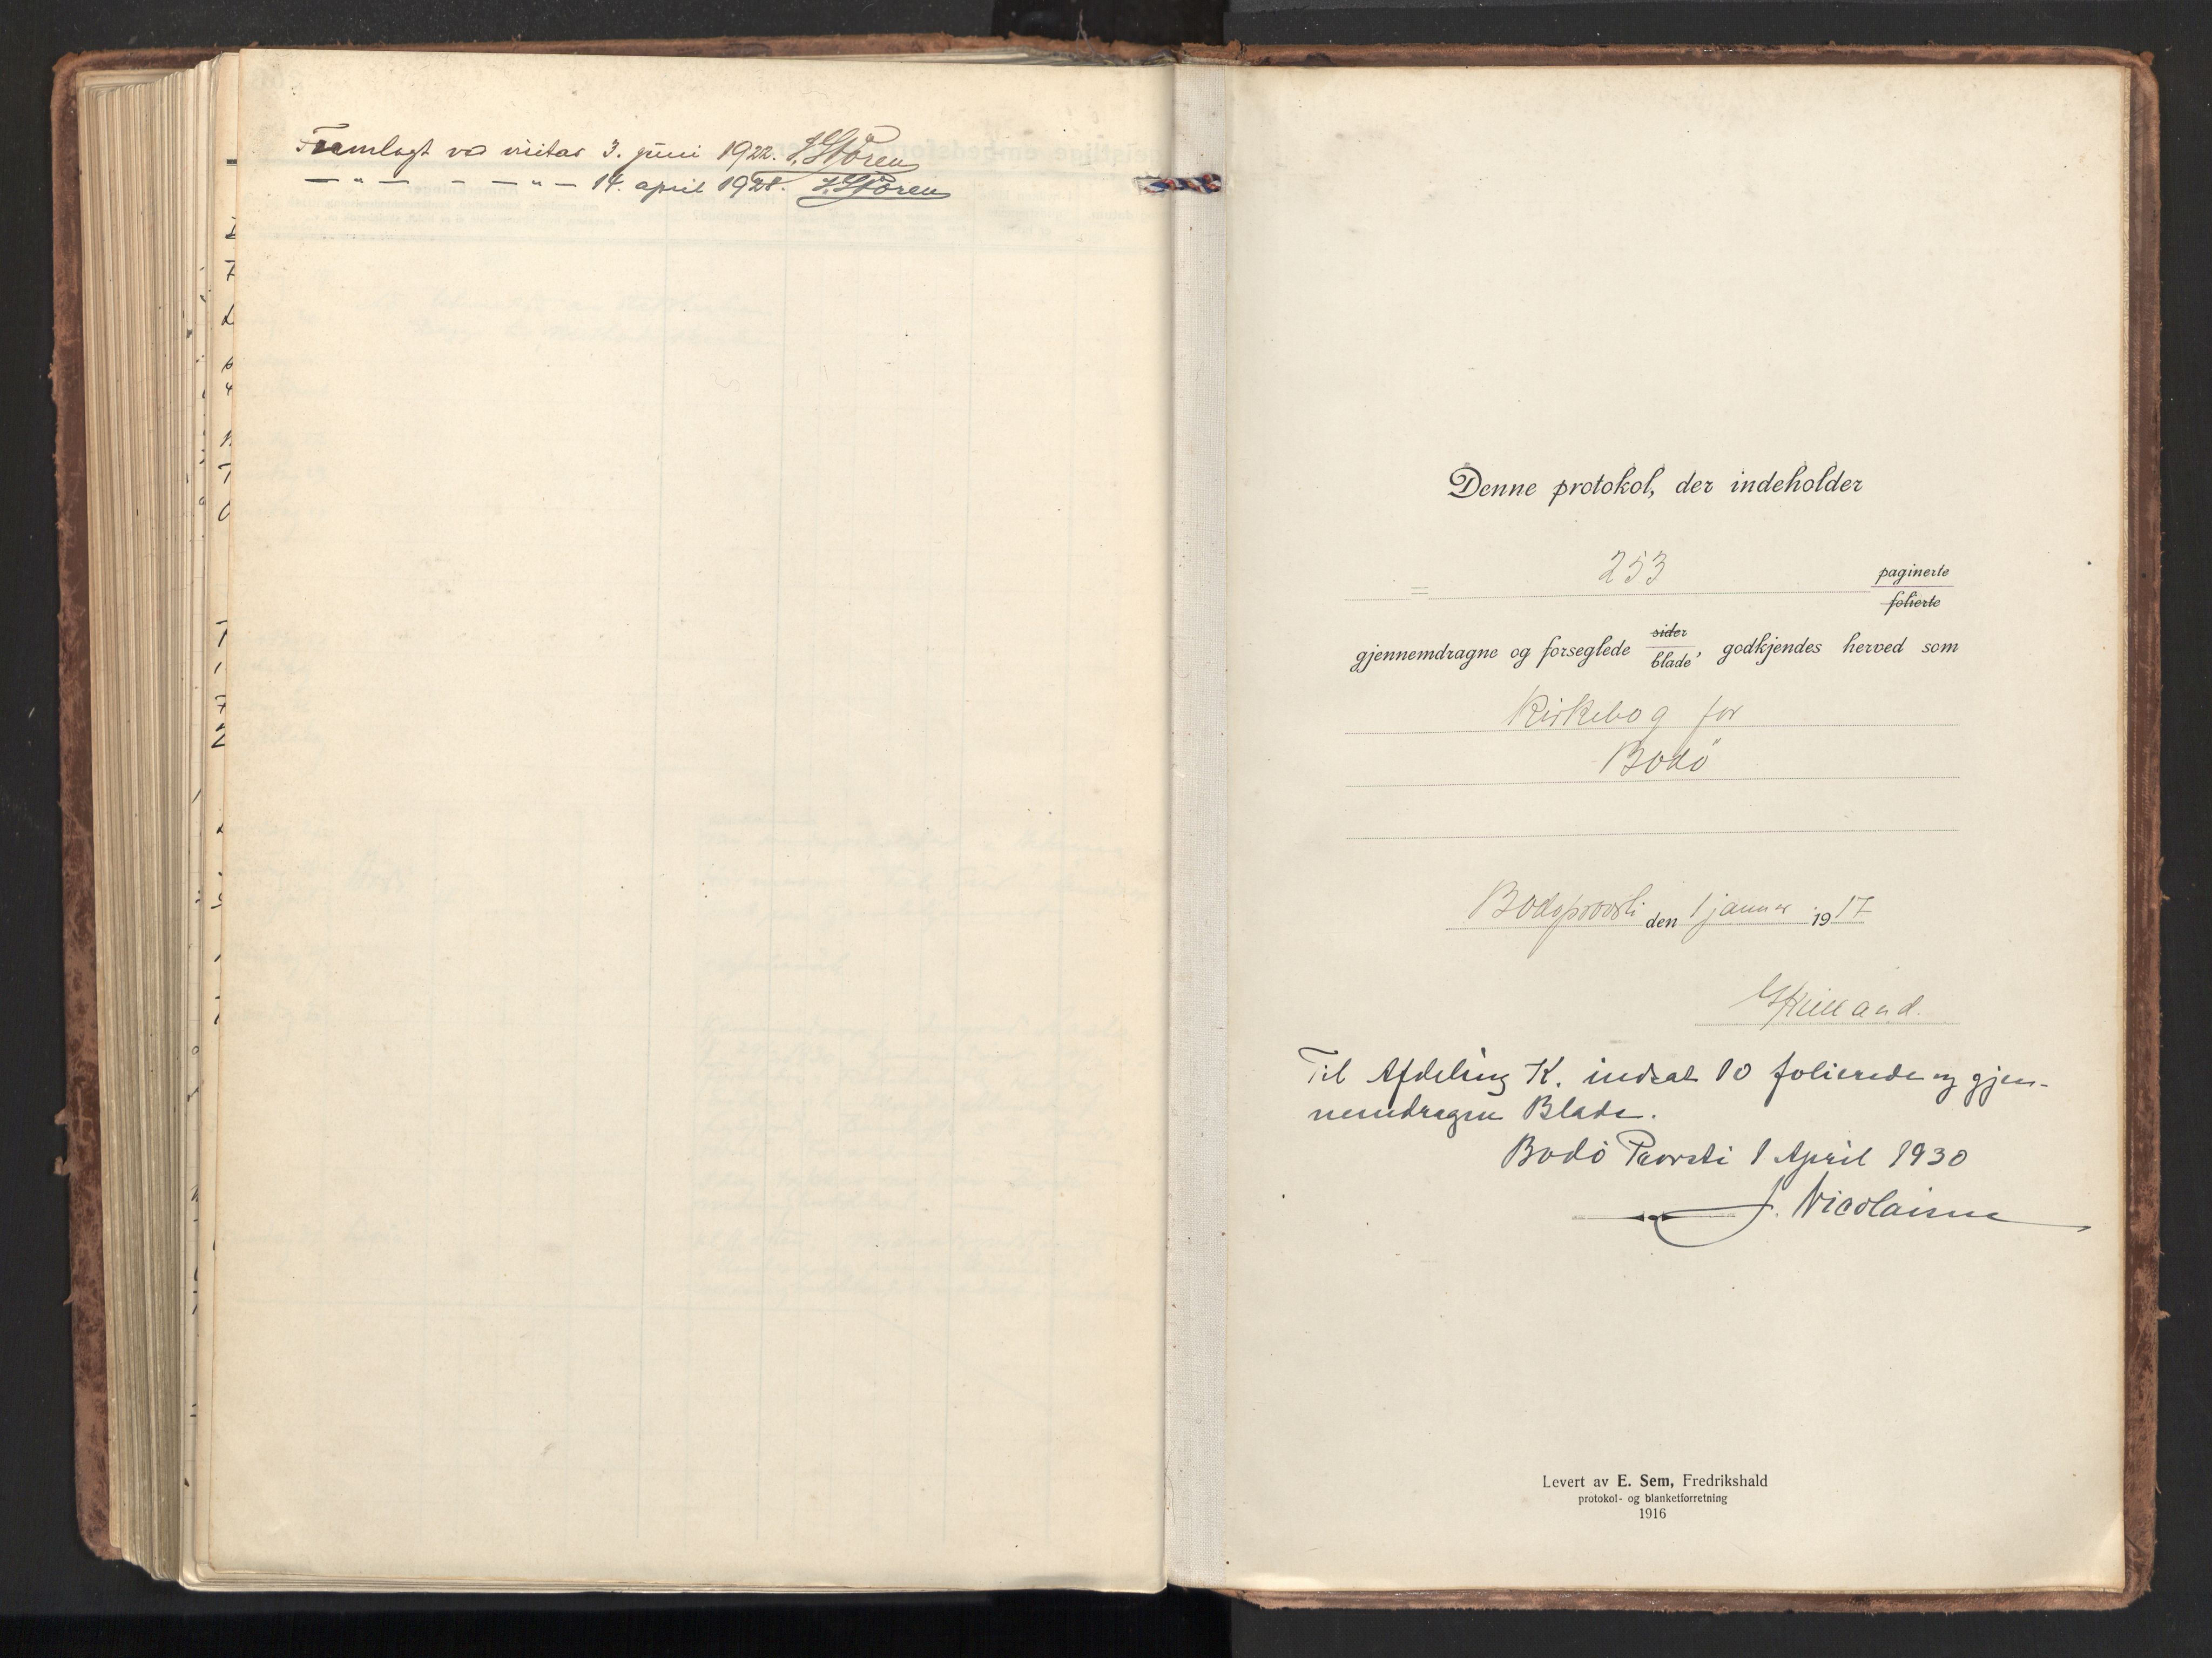 Fremlagt ved visitas 3. juni 1922. J. Støren
— " — — " — 14. april 1928. J. Støren
Denne protokol, der indeholder
= 253 paginerte
folierte
gjennemdragne og forseglede sider blade, godkjendes herved som
Kirkebog for
Bodö
Bodøprovsti den 1 januar 1917
Kielland.
Til Afdeling K. indsat 10 folierede og gjen-
nemdragne Blade.
Bodö Provsti 1 April 1930
J. Nicolaisen
Levert av E. Sem, Fredrikshald
protokol- og blanketforretning
1916